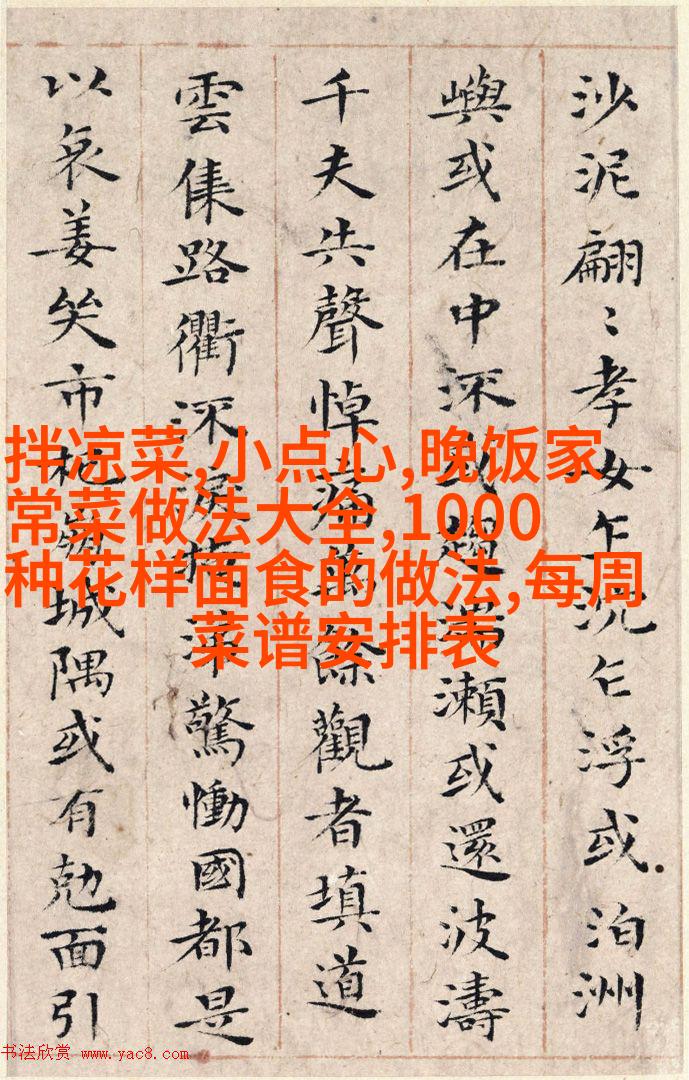 沙泥翩〻孝女乍沉乍浮或泊洲
嶼或在中流或趨湍瀨或還波濤
千夫失聲悼痛萬餘觀者填道
雲集路衢流淚掩涕驚慟國都是
以哀姜哭市杞崩城隅或有尅面引
拌凉菜,小点心,晚饭家
常菜做法大全,1000
种花样面食的做法,每周
菜谱安排表
书法欣赏 www.yac8.com